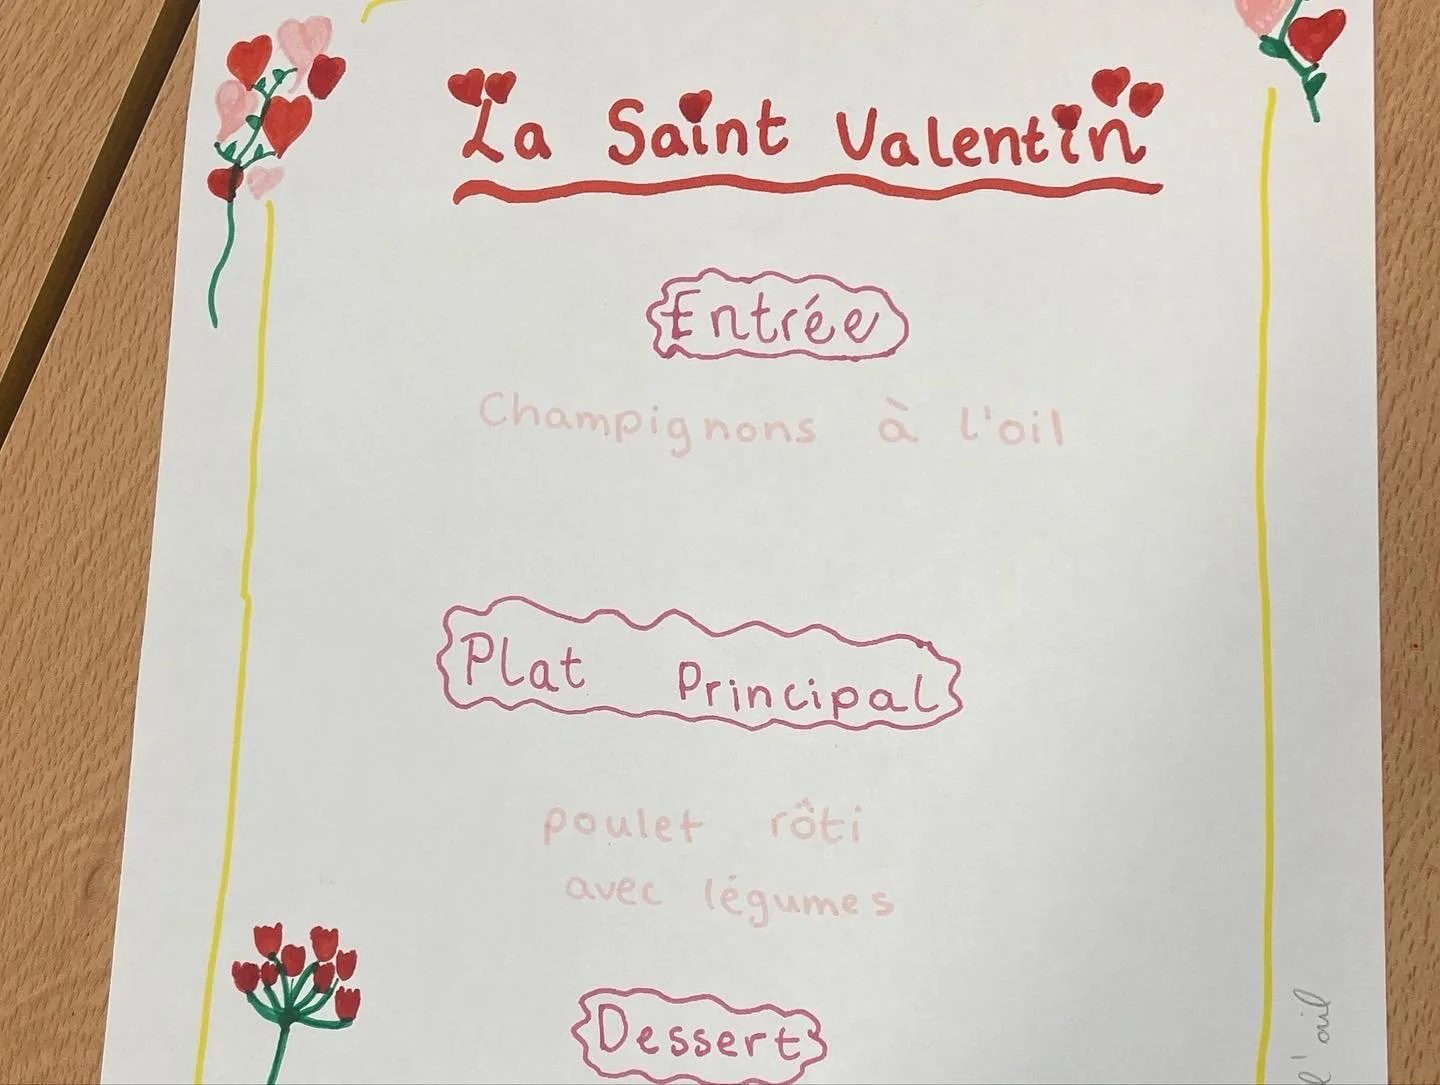 La Saint Valentin
Entrée
Champignons à l'oil
Plat Principal
poulet rôti
avec légumes
Dessert
l'oil